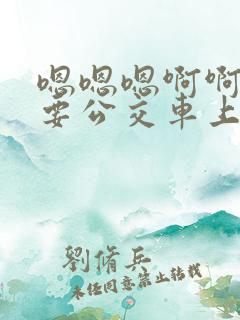 嗯嗯嗯啊啊
要公交車上
劉脩兵
未经同意禁止转载